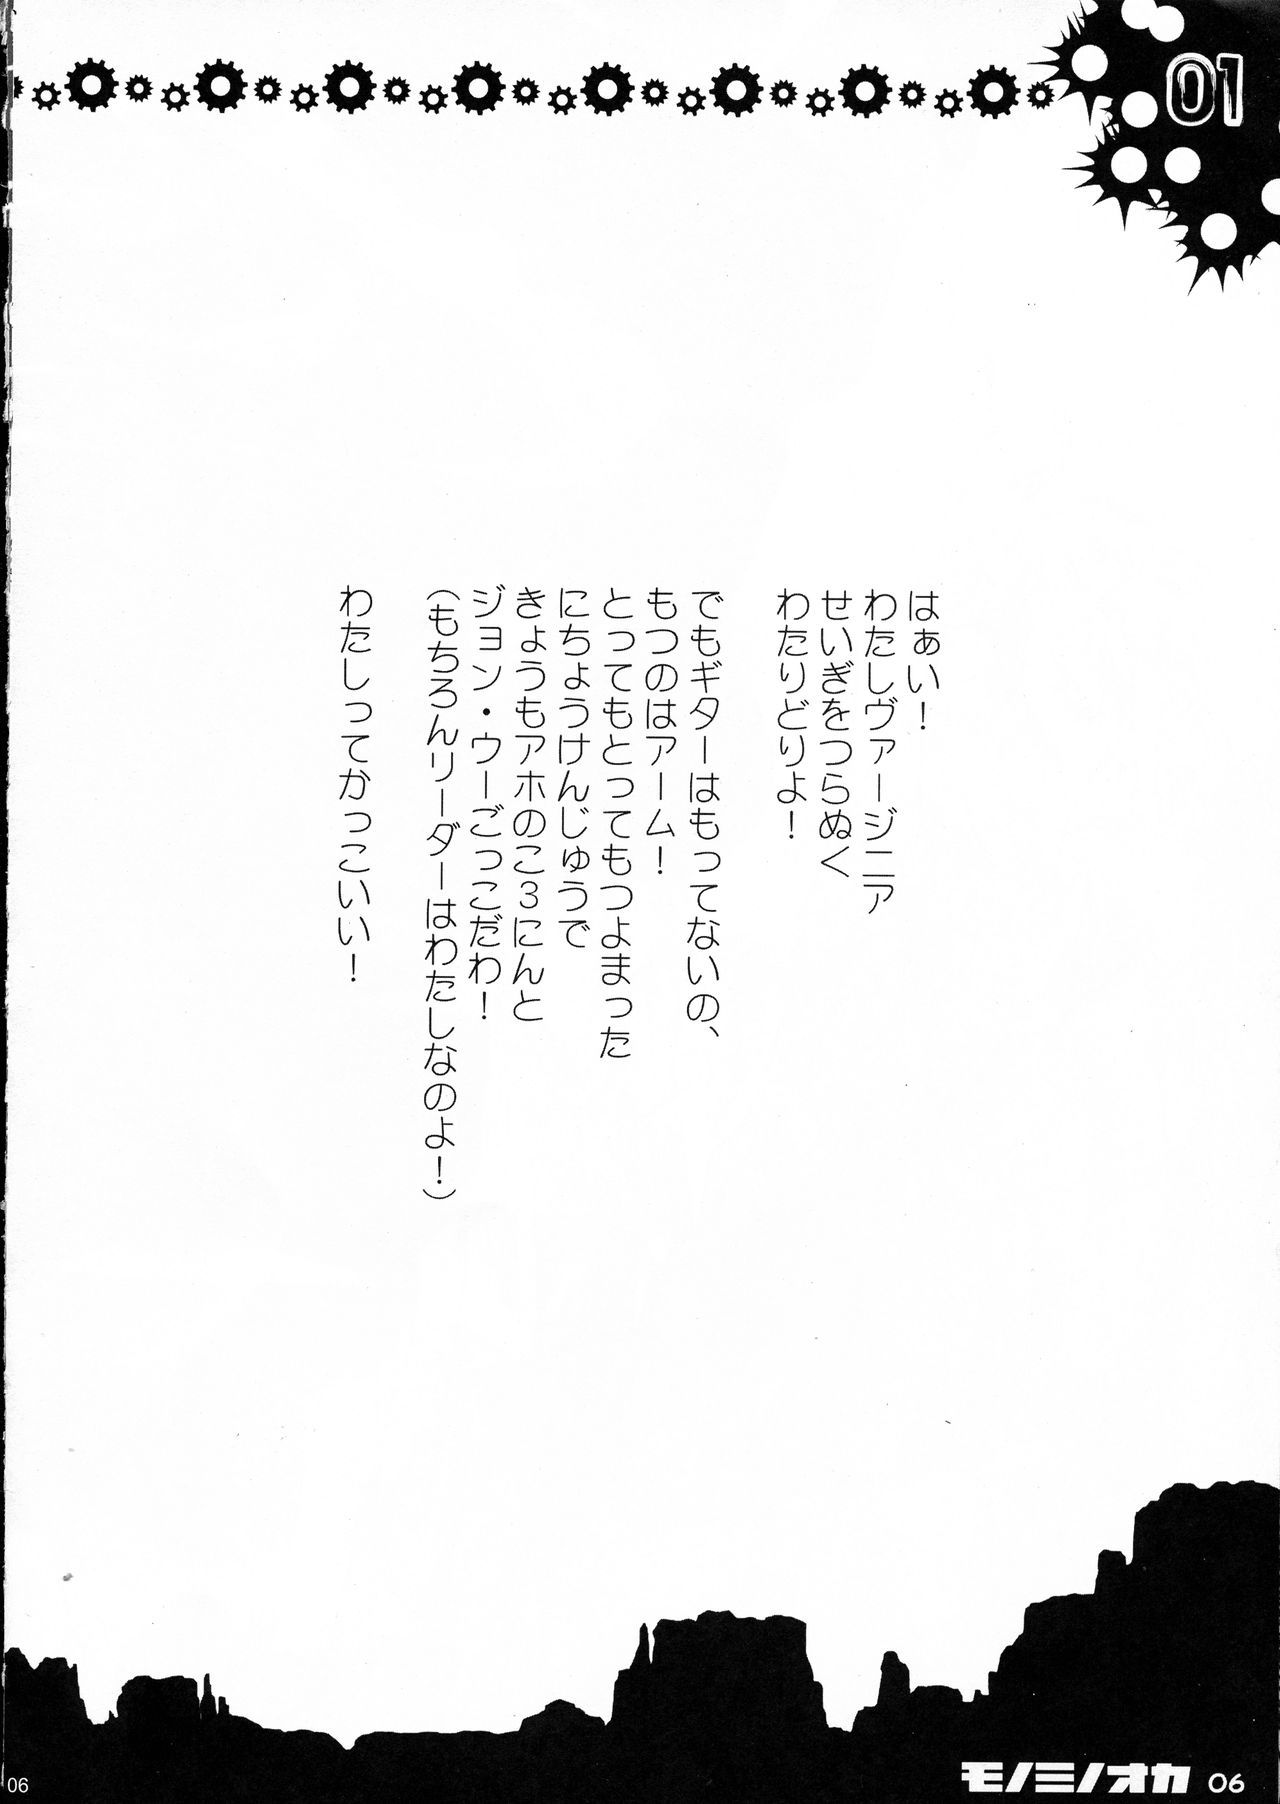 01
はぁい！
わたしヴァージニア
せいぎをつらぬく
わたりどりよ！
でもギターはもってないの、
もつのはアーム！
とってもとってもつよまった
にちょうけんじゅうで
きょうもアホのこ３にんと
ジョン・ウーごっこだわ！
（もちろんリーダーはわたしなのよ！）
わたしってかっこいい！
06
モノミノオカ 06